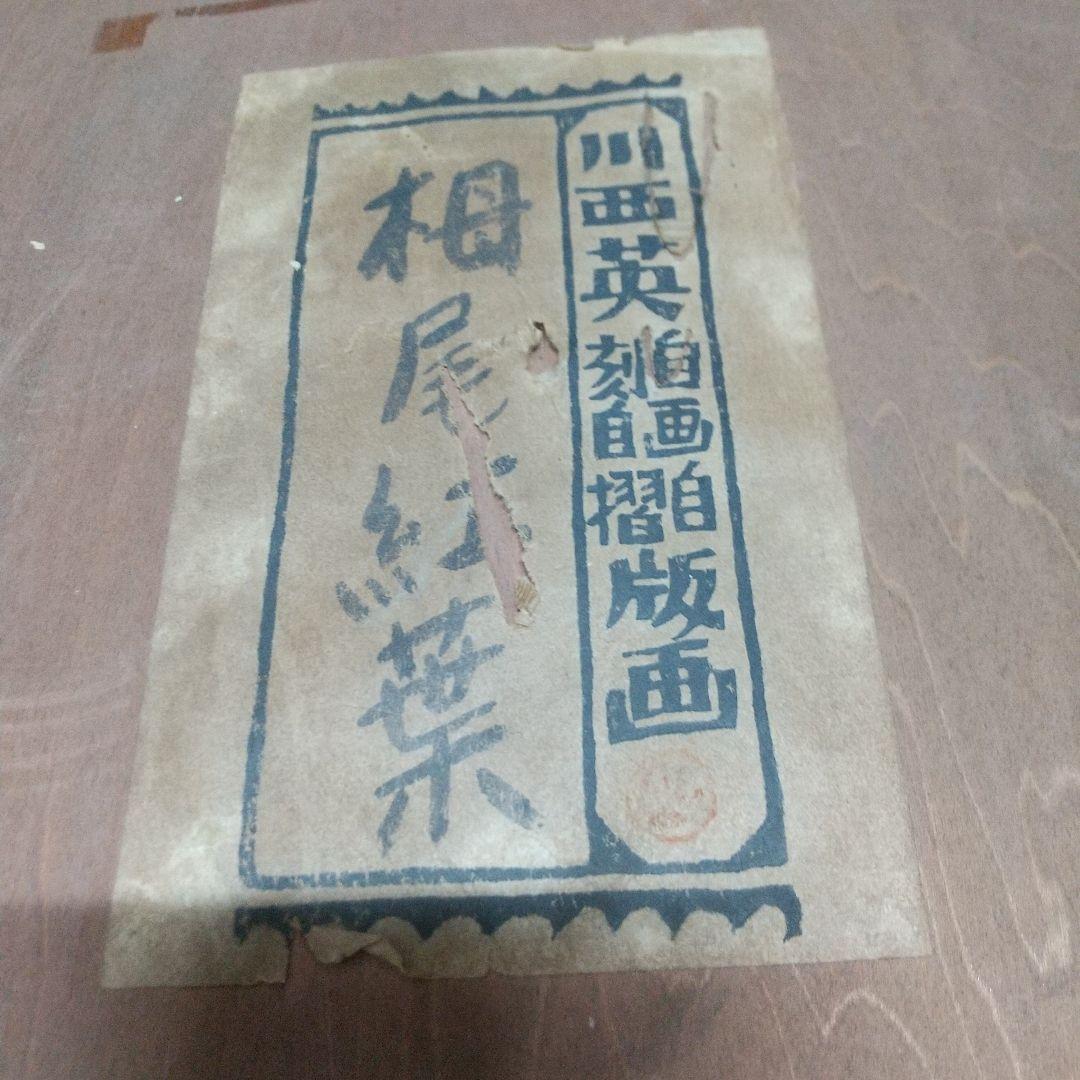 川西英自画自刻自摺版画
栂尾紅葉